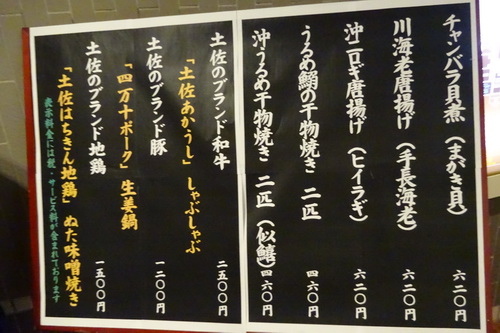 チャンバラ貝煮(まがき貝) 六二〇円
川海老唐揚げ(手長海老) 六二〇円
沖ニロギ唐揚げ(ヒイラギ) 六二〇円
うるめ鰯の干物焼き 二匹 四六〇円
沖うるめ干物焼き 二匹(似鱚) 四六〇円
土佐のブランド和牛
「土佐あかうし」しゃぶしゃぶ 二五〇〇円
土佐のブランド豚
「四万十ポーク」生姜鍋 一二〇〇円
土佐のブランド地鶏
「土佐はちきん地鶏」ぬた味噌焼き 一五〇〇円
表示料金には税・サービス料が含まれております